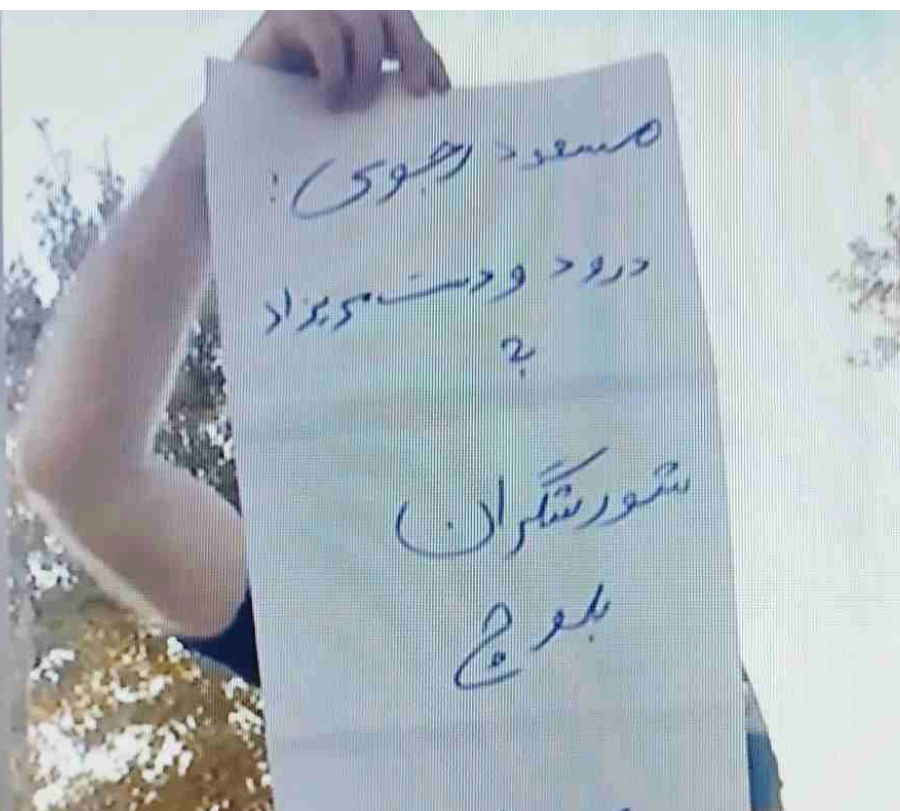 مسعود رجوی:
درود و دست مریزاد
به
شورشگران
بلوچ